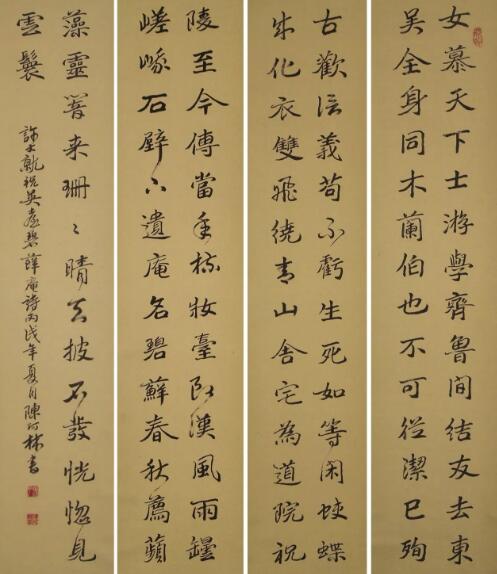 女慕天下士游學齊魯間結友去東
吴全身同木蘭伯也不可從潔已殉
古歡信義苟不虧生死如等閑蛺蝶
成化衣雙飛繞青山舍宅為道院祝
陵至今傳當年梳妝臺漠風雨
嵯峨石壁下遺庵名碧蘚春秋薦蘋
藻靈響来珊々晴天披石發恍惚見
雲鬟
祝英臺碧蘚庵詩丙戌年夏月陳林書